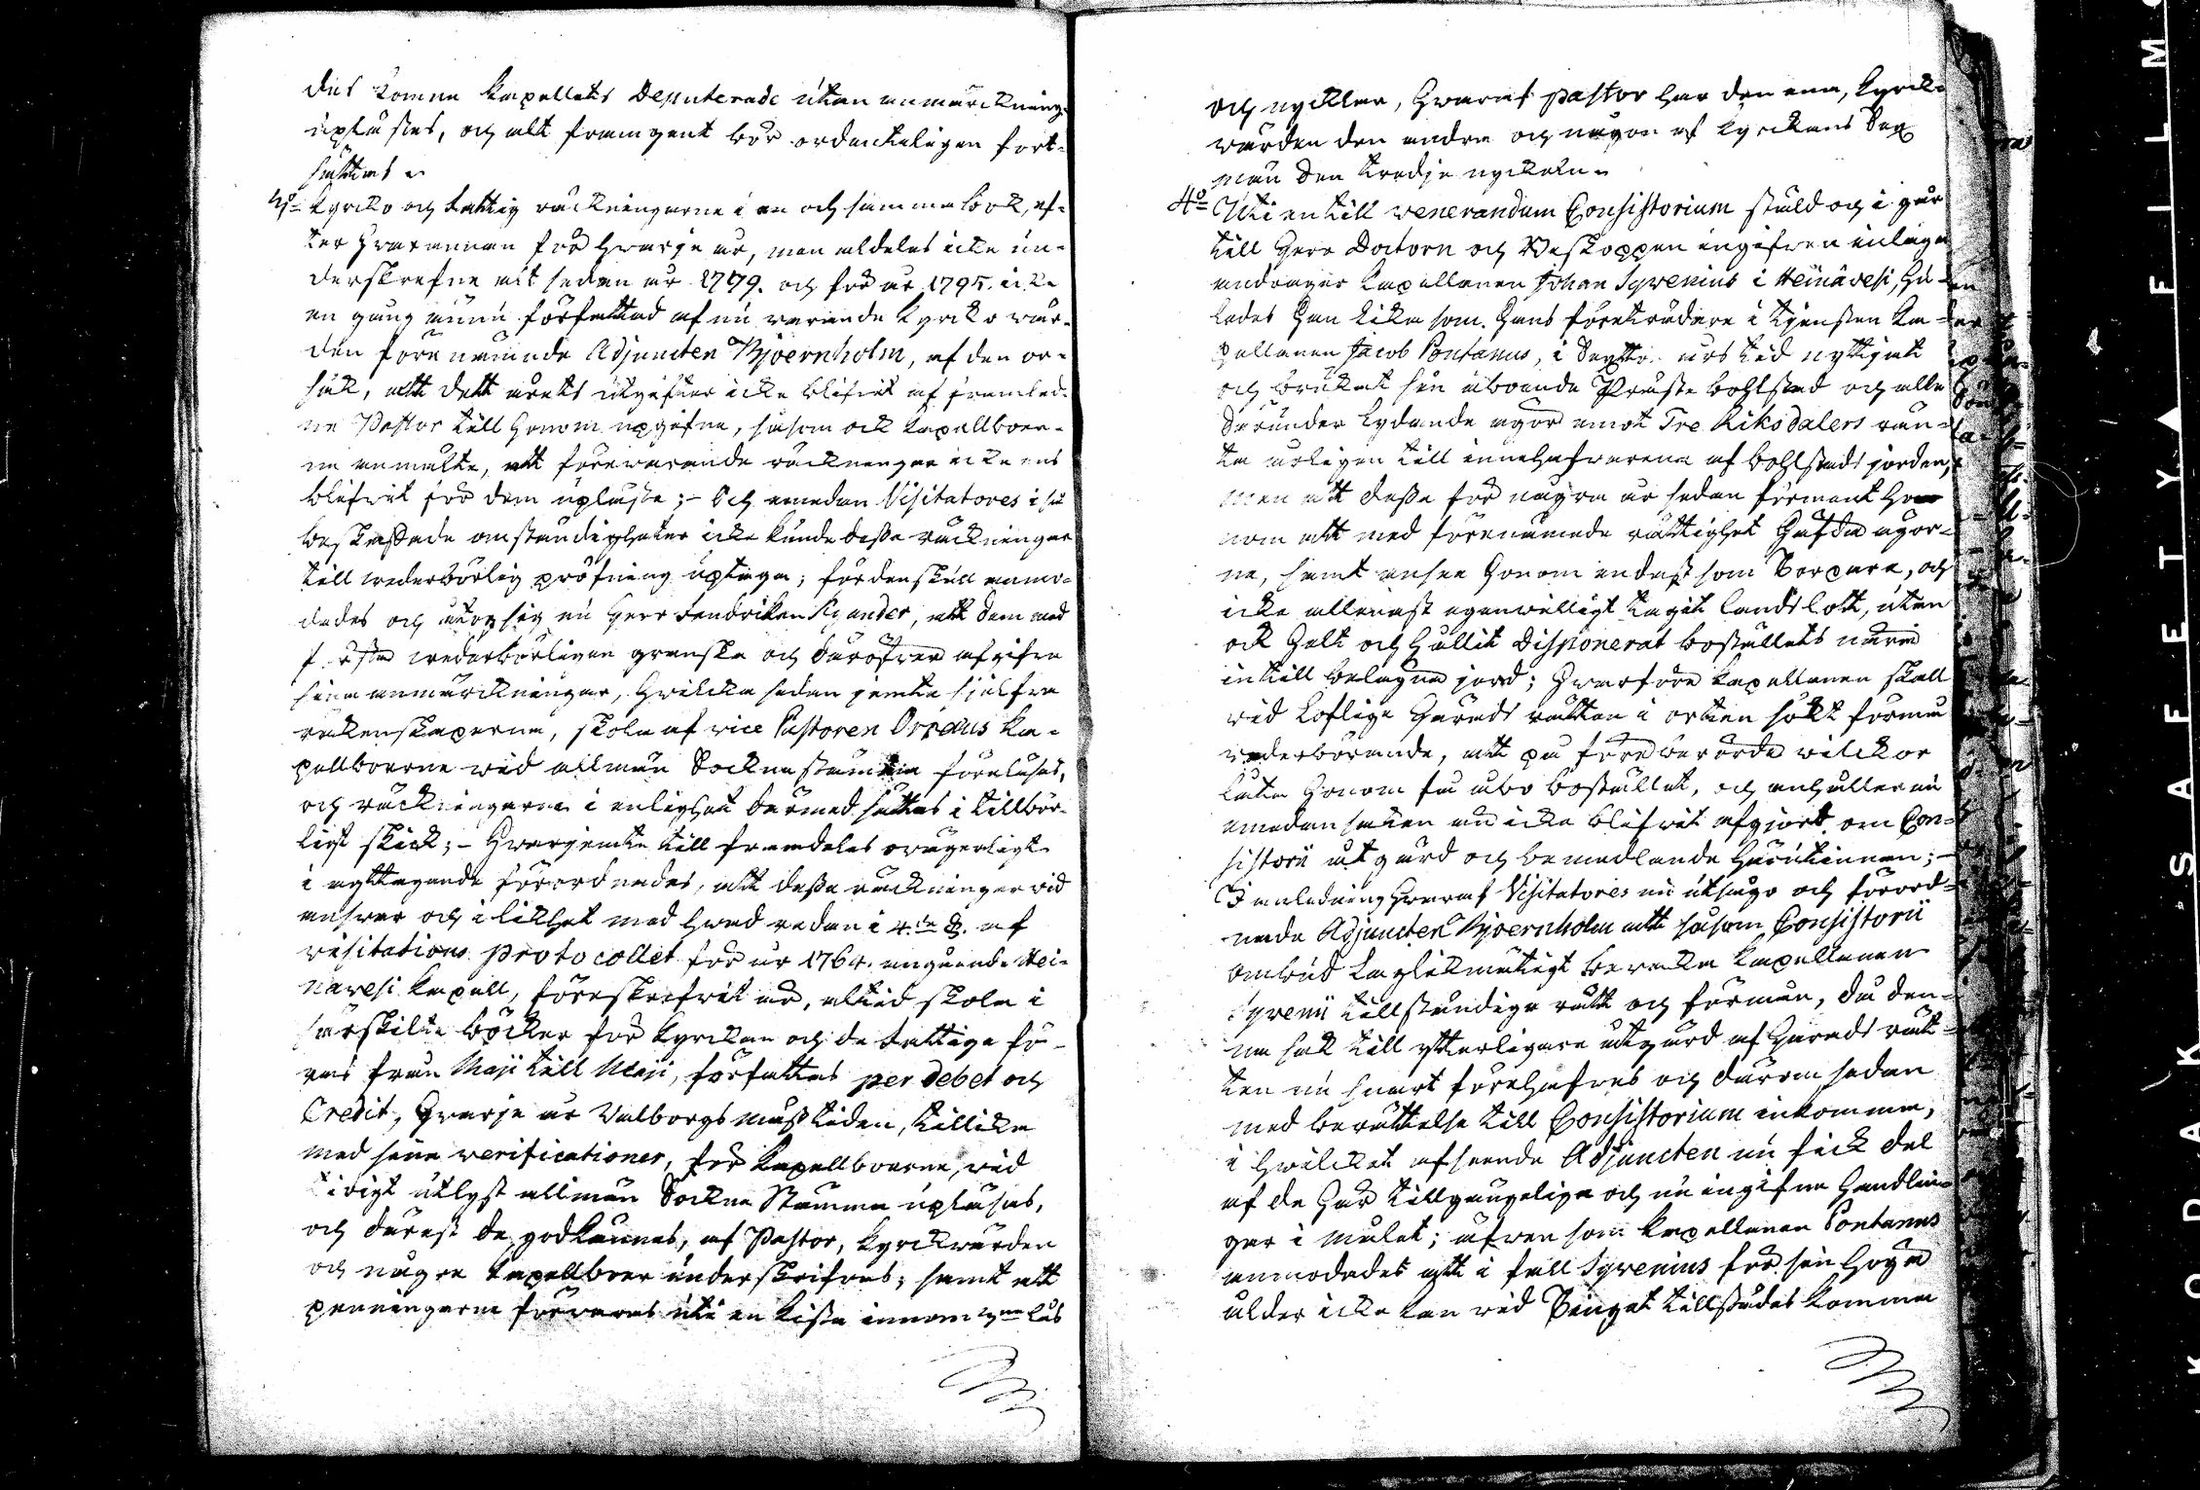 des komne Kapellets Deputerade utan anmärckning
uplästes, och allt framgent bör ordenteligen fort-
sättias.
3:o Kyrko och fattig räckningarne i en och samma bok, ef-
ter hvarannan för hvarje år, men aldeles icke un-
derskrefne allt sedan år 1779. och för år 1795. icke
en gång ännu författad af nu varande Kyrkovär-
den förenämnde Adjuncten Bjoernholm, af den or-
sak, att dett årets utgifter icke blifvit af framled-
ne Pastor till honom upgifne, såsom ock Kapellboer-
ne anmälte, att förevarande räckningar icke ens
blifvit för dem upläste; - Och emedan Visitatores i så
beskaffade omständigheter icke kunde desse räckningar
till wederbörlig pröfning uptaga; fördenskull anmo-
dades och åtog sig nu Herr Fendriken Kyander, att dem med
första wederbörligen granska och däröfver afgifva
sina anmärckningar, hvilcka sedan jemte sjelfva
räkenskaperne, skola af vice Pastoren Orraeus Ka-
pellboerne vid allmän Sockne stämma föreläsas,
och räckningarne i enlighet dermed sättas i tillbör-
ligt skick; - Hvarjemte till framdeles oryggerligt
i agttagande förordnades, att desse räckningar vid
answar och i likhet med hvad redan i 4:de §. af
visitations protocollet för år 1764. angående Hei-
navesi Kapell, föreskrefvit är, altid skola i
särskilte böcker för Kyrckan och de fattige fö-
ras från Maji till Maji, författas per debet och
Credit, hvarje år Valborgsmäss tiden, tillika
med sina verificationer, för Kapellboerne, vid
tidigt utlyst allmän Sockne Stämma upläsas,
och därest de godkännas, af Pastor, Kyrckvärden
och någre Kapellboer underskrifvas; samt att
penningarne förvaras uti en kista innom 3:ne lås
och nycklar, hvaraf Pastor har den ena, Kyrck-
värden den andra och någon af Kyrckans Sex
män den tredje nyckeln.
4:o Uti en till venerandum Consistorium stäld och i går
till Herr Doctorn och Biskoppen ingifven inlaga
andrager Kapellanen Johan Syrenius i Heinävesi, hu-
ledes han lika som hans företrädare i tjensten Ka-
pellanen Jacob Pontanus, i Sextio års tid nyttjat
och brukat sin åboende Präste bohlstad och alle
derunder lydande ägor emot Tre Riksdalers rän-
ta årligen till innehafvarena af bohlstads jorden,
men att desse för några år sedan förment ho-
nom att med förenämnde rättighet häfda ägor-
ne, samt ansee honom endast som Torpare, och
icke allenast egenvilligt tagit landslott, utan
ock helt och hållit Disponerat boställets närmast
intill belägne jord; hvarföre Kapellanen skall
vid Loflige Härads rätten i orten sökt förmå
vederbörande, att på föreberörde vilckor
låta honom få åbo bostället, och anhåller nu
emedan saken än icke blifvit afgjort, om Con-
sistorii åtgärd och bemedlande härutinnan; -
I anledning hvaraf Visitatores nu utsågo och förord-
nade Adjuncten Bjoernholm att såsom Consistorii
Ombud laglikmätigt bevaka Kapellanen
Syrenii tillständige rätt och förmån, då den-
na sak till ytterligare åtgärd af Härads rät-
ten nu snart förehafves och därom sedan
med berättelse till Consistorium inkomma,
i hvilcket afseende Adjuncten nu fick del
af de här tillgängelige och nu ingifne Handlin-
gar i målet; äfven som Kapellanen Pontanus
anmodades att i fall Syrenius för sin höga
ålder icke kan vid Tinget tillstädes komma